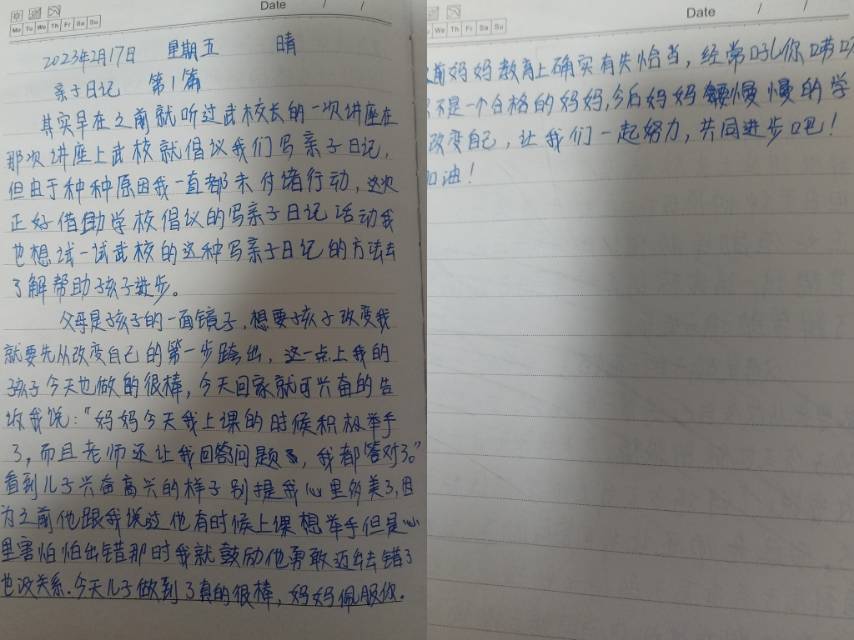 Date / /
Mo Tu We Th Fr Sa Su
2023年2月17日 星期五 晴
亲子日记 第1篇
其实早在之前就听过武校长的一次讲座在
那次讲座上武校就倡议我们写亲子日记,
但由于种种原因我一直都未付诸行动,这次
正好借助学校倡议的写亲子日记活动我
也想试一试武校的这种写亲子日记的方法去
了解帮助孩子进步。
父母是孩子的一面镜子,想要孩子改变我
就要先从改变自己的第一步跨出,这一点上我的
孩子今天也做的很棒,今天回家就可兴奋的告
诉我说:"妈妈今天我上课的时候积极举手
了,而且老师还让我回答问题,我都答对了。"
看到儿子兴奋高兴的样子别提我心里多美了,因
为之前他跟我说过他有时候上课想举手但是心
里害怕怕出错那时我就鼓励他勇敢迈出去错了
也没关系.今天儿子做到了真的很棒,妈妈佩服你.
Date / /
Fr Sa Su
前妈妈教育上确实有失恰当,经常吼你
不是一个合格的妈妈,今后妈妈慢慢的学
改变自己,让我们一起努力,共同进步吧!
加油!